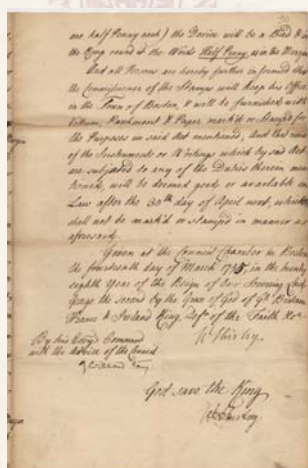 are half Penny each) the Device will be a Bird &
the Ring round it the Words Half Penny as in the Margin
And all Persons are hereby further informed that
the Commissioner of the Stamps will keep his Office
in the Town of Boston, & will be furnished with
Vellum, Parchment & Paper mark'd or stamped for
the Purposes in said Act mentioned, And that none
of the Instruments or Writings which by said Act
are subjected to any of the Duties therein men
tioned, will be deemed good or available in
Law after the 30th day of April next, which
shall not be mark'd or stamped in manner as
aforesaid.
Given at the Council Chamber in Boston
the fourteenth day of March 1755, in the twenty
eighth Year of the Reign of Our Sovereign Lord
George the Second by the Grace of God of Gt Britain
France & Ireland King, Defr of the Faith &c.
By his Excys Command
with the Advice of the Council
W Shirley
God save the King